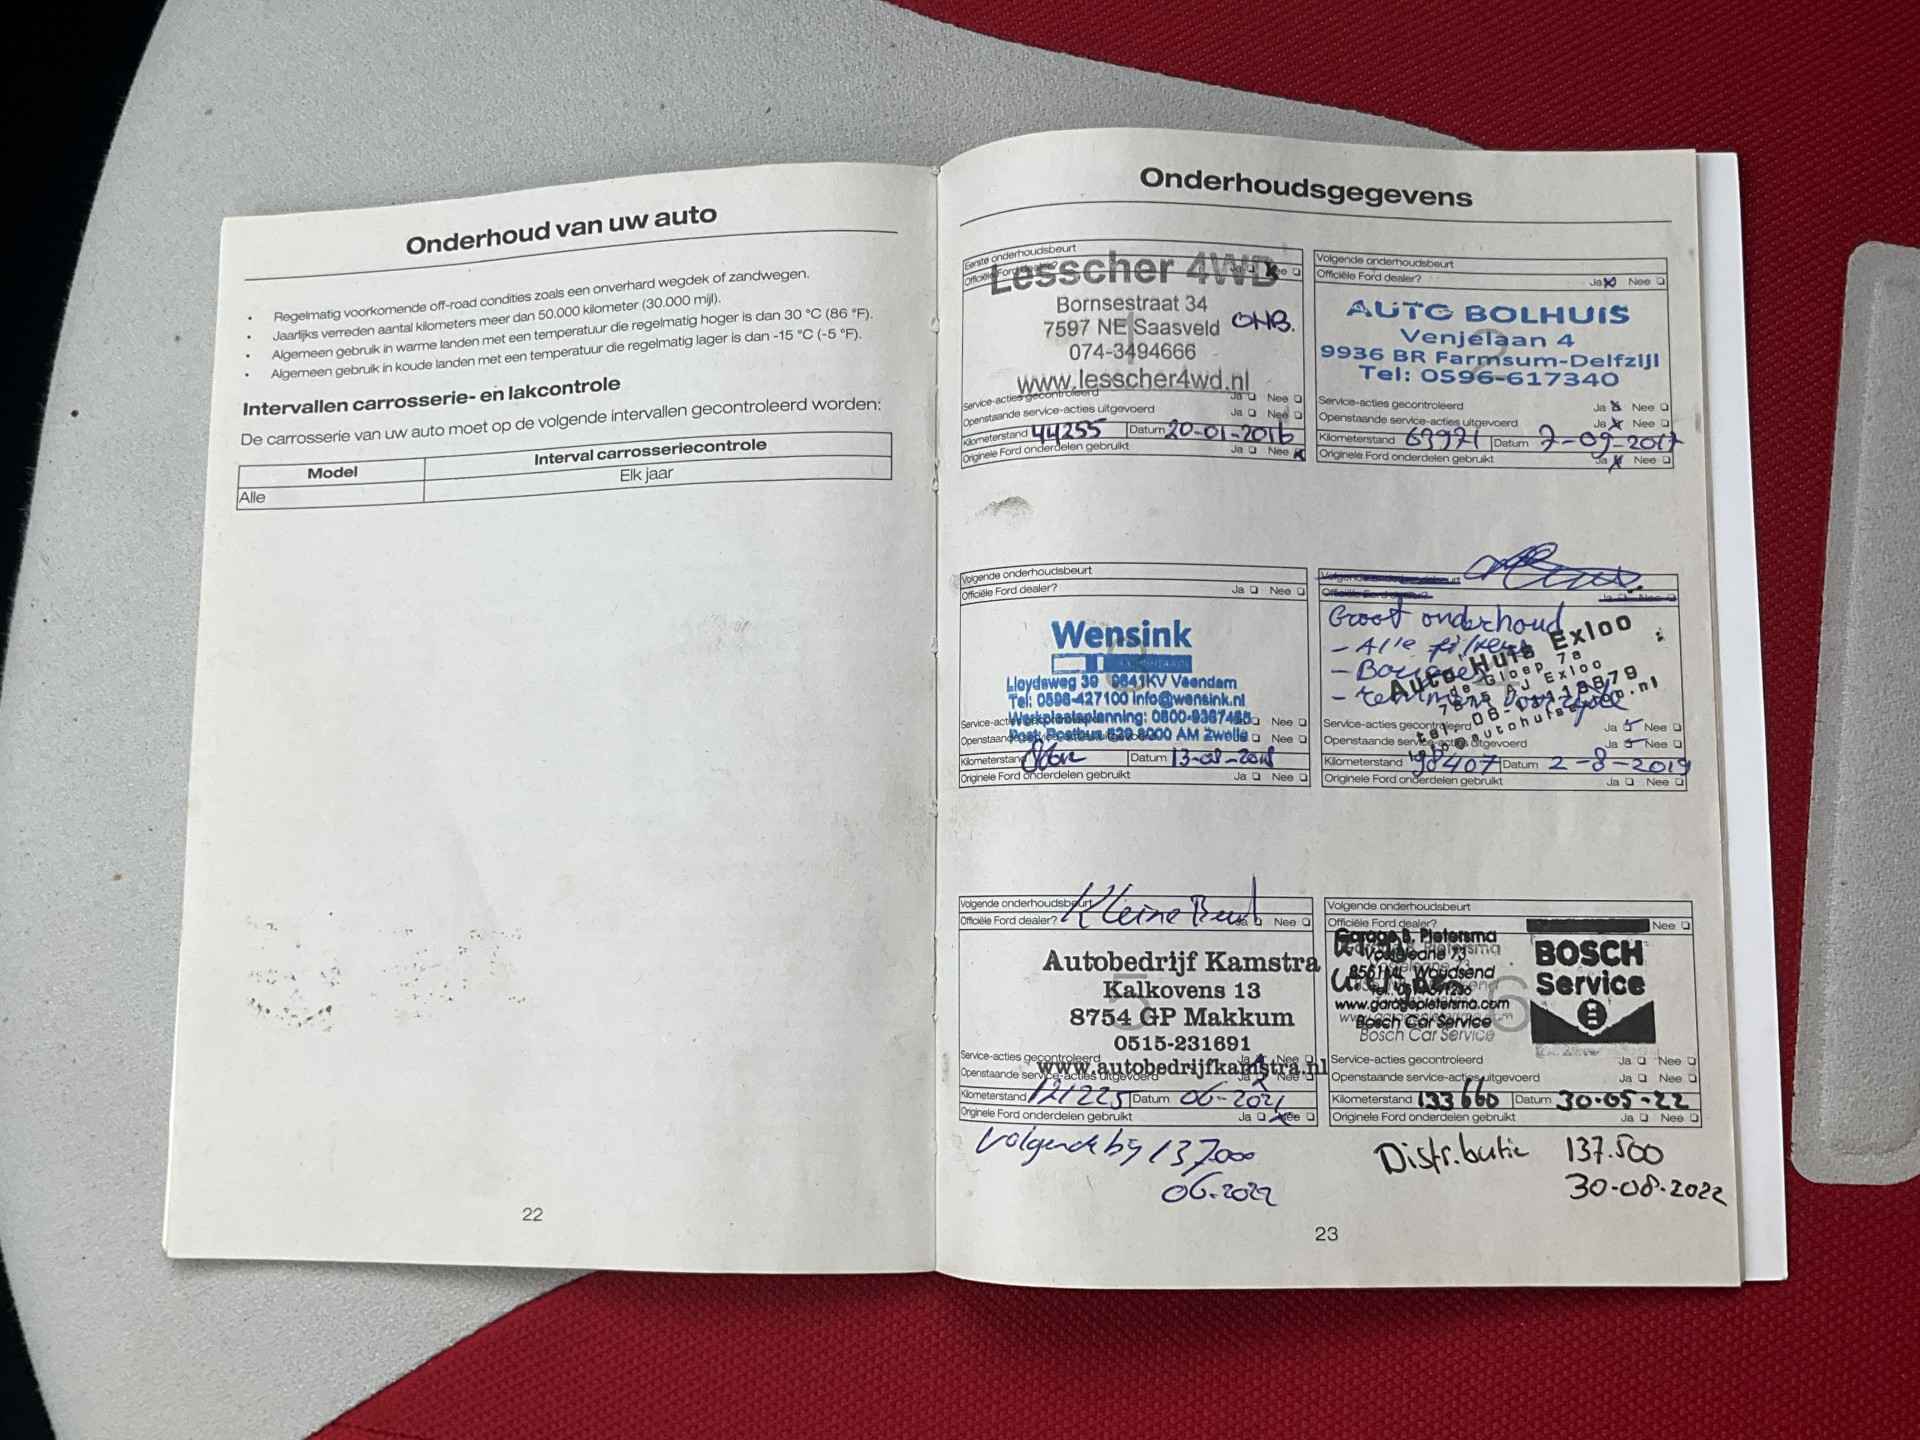 Onderhoud van uw auto
• Regelmatig voorkomende off-road condities zoals een onverhard wegdek of zandwegen.
• Jaarlijks verreden aantal kilometers meer dan 50.000 kilometer (30.000 mijl).
• Algemeen gebruik in warme landen met een temperatuur die regelmatig hoger is dan 30 °C (86 °F).
• Algemeen gebruik in koude landen met een temperatuur die regelmatig lager is dan -15 °C (-5 °F).
Intervallen carrosserie- en lakcontrole
De carrosserie van uw auto moet op de volgende intervallen gecontroleerd worden:
Model Interval carrosseriecontrole
Alle Elk jaar
22
Onderhoudsgegevens
Eerste onderhoudsbeurt
Officiële Ford dealer? Ja Nee
Lesscher 4WD
Bornsestraat 34
7597 NE Saasveld OHB.
074-3494666
www.lesscher4wd.nl
Service-acties gecontroleerd Ja Nee
Openstaande service-acties uitgevoerd Ja Nee
Kilometerstand 44255 Datum 20-01-2016
Originele Ford onderdelen gebruikt Ja Nee
Volgende onderhoudsbeurt
Officiële Ford dealer? Ja Nee
AUTO BOLHUIS
2
Venjelaan 4
9936 BR Farmsum-Delfzijl
Tel: 0596-617340
Service-acties gecontroleerd Ja Nee
Openstaande service-acties uitgevoerd Ja Nee
Kilometerstand 69971 Datum 7-09-2017
Originele Ford onderdelen gebruikt Ja Nee
Volgende onderhoudsbeurt
Officiële Ford dealer? Ja Nee
Wensink
3
Lloydsweg 39 9641KV Veendam
Tel: 0598-427100 info@wensink.nl
Werkplaatsplanning: 0800-9367465
Post: Postbus 829 8000 AM Zwolle
Ja Nee
Ja Nee
Kilometerstand Datum 13-08-2018
Originele Ford onderdelen gebruikt Ja Nee
Volgende onderhoudsbeurt
Officiële Ford dealer? Ja Nee
Groot onderhoud
- Alle filters
Auto Huis Exloo
de Gloep 7a
7875 AJ Exloo
Service-acties gecontroleerd Ja Nee
Openstaande service-acties uitgevoerd Ja Nee
Kilometerstand 98407 Datum 2-8-2019
Originele Ford onderdelen gebruikt Ja Nee
Volgende onderhoudsbeurt
Kleine Beurt
Officiële Ford dealer? Ja Nee
Autobedrijf Kamstra
Kalkovens 13
5
8754 GP Makkum
0515-231691
Service-acties gecontroleerd Ja Nee
www.autobedrijfkamstra.nl
Openstaande service-acties uitgevoerd Ja Nee
Kilometerstand 121225 Datum 06-2021
Originele Ford onderdelen gebruikt Ja Nee
Volgende bij 137.000
06-2022
Volgende onderhoudsbeurt
Officiële Ford dealer? Nee
Garage B. Pietersma
8561 ML Woudsend
www.garagepietersma.com
Bosch Car Service
BOSCH
Service
6
Service-acties gecontroleerd Ja Nee
Openstaande service-acties uitgevoerd Ja Nee
Kilometerstand 133660 Datum 30-05-22
Originele Ford onderdelen gebruikt Ja Nee
Distributie 137.500
30-08-2022
23